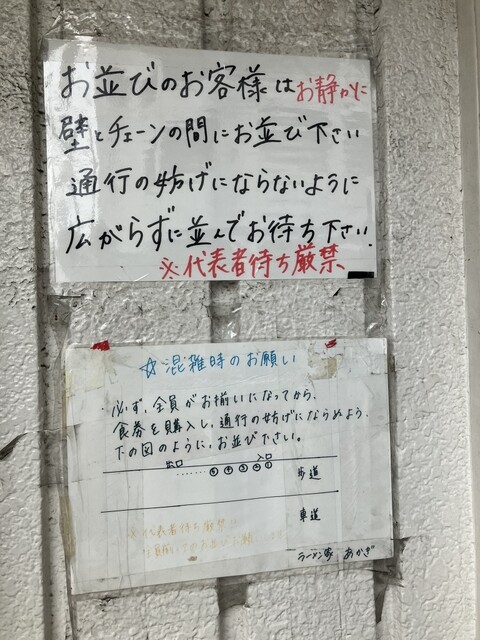 お並びのお客様はお静かに
壁とチェーンの間にお並び下さい
通行の妨げにならないように
広がらずに並んでお待ち下さい.
※代表者待ち厳禁
☆混雑時のお願い
必ず、全員がお揃いになってから、
食券を購入し、通行の妨げにならぬよう、
下の図のように、お並び下さい。
出口 入口
······⑤④③②① 歩道
車道
※代表者待ち厳禁!!
全員揃いでお並びお願いします
ラーメン家 あかぎ